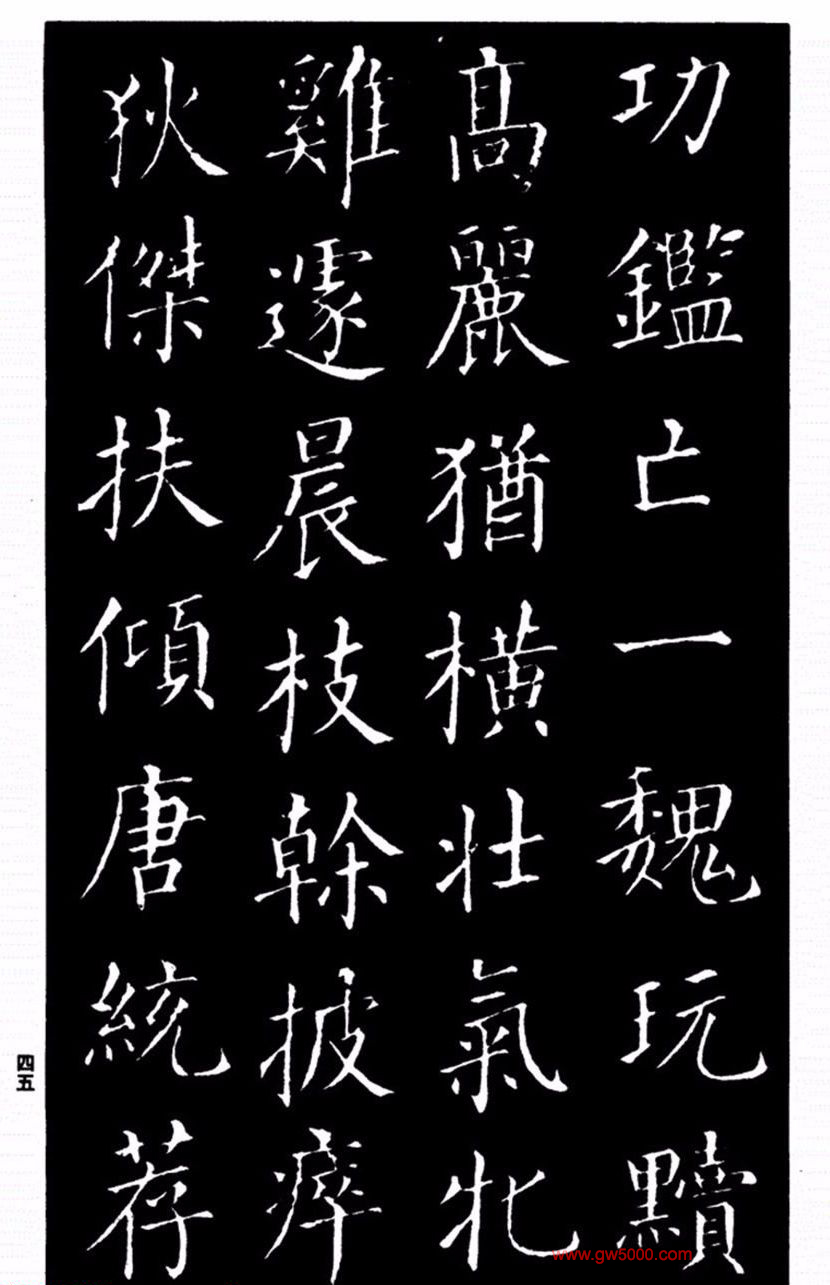 功鑑亡一魏玩黷
高麗猶橫壯氣牝
雞遽晨枝幹披瘁
狄傑扶傾唐統荐
四五
www.gw5000.com